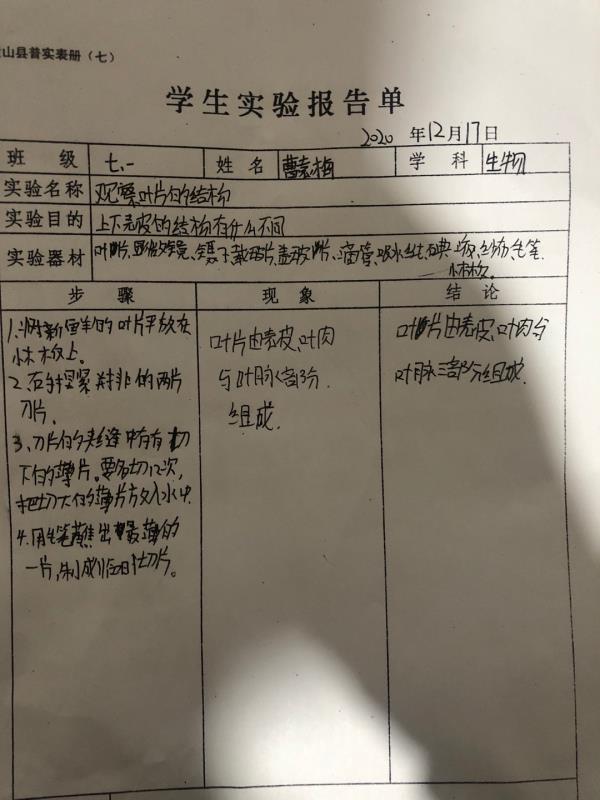 山县普实表册（七）
学生实验报告单
2020 年12月17日
班级 七.一 姓名 曹素梅 学科 生物
实验名称 观察叶片的结构
实验目的 上下表皮的结构有什么不同
实验器材 叶片、显微镜、镊子、载玻片、盖玻片、滴管、吸水纸、碘液、纱布、毛笔、
木板。
步骤 现象 结论
1.将新鲜的叶片平放在
小木板上。
2.右手捏紧并排的两片
刀片。
3、刀片的夹缝中存有切
下的薄片。要多切几次，
把切下的薄片放入水中
4.用毛笔蘸出最薄的
一片，制成临时切片。
叶片由表皮、叶肉
与叶脉三部分
组成.
叶片由表皮、叶肉与
叶脉三部分组成.